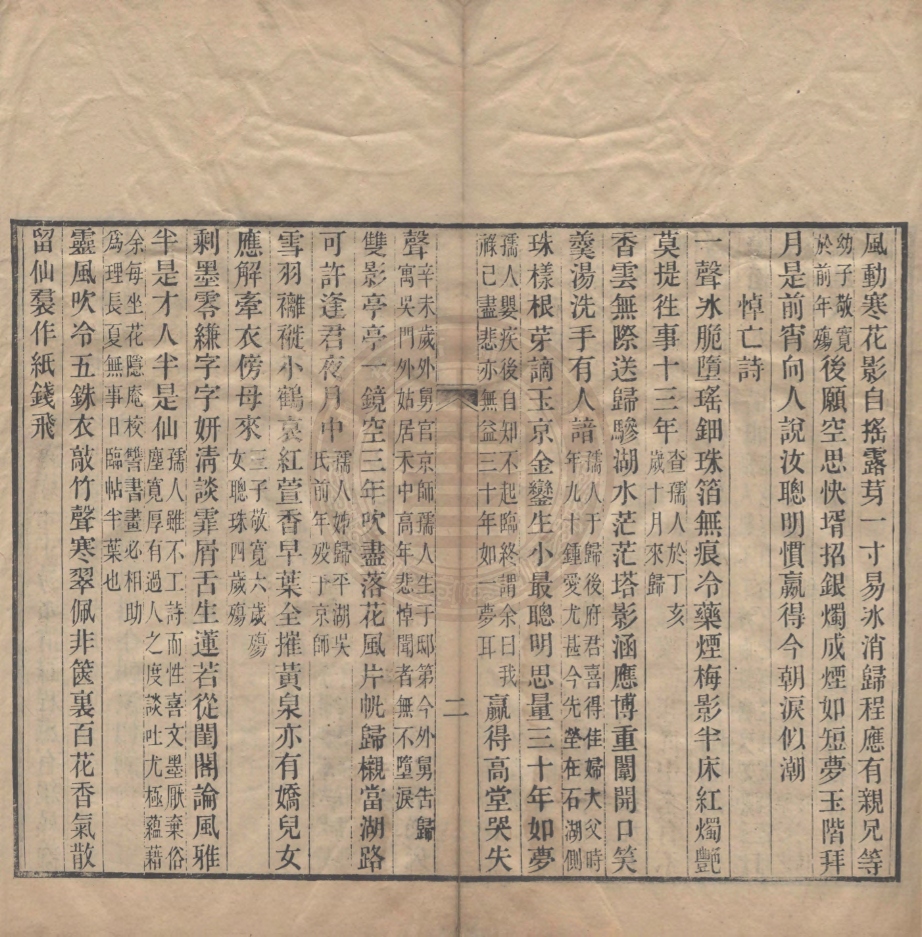 風動寒花影自搖露芽一寸易冰消歸程應有親兄等
幼子敬寬於前年殤後願空思快壻招銀燭成煙如短夢玉階拜
月是前宵向人說汝聰明慣贏得今朝淚似潮
悼亡詩
一聲冰脆墮瑤鈿珠箔無痕冷藥煙梅影半床紅燭豔
莫提往事十三年查孺人於丁亥歲十月來歸
香雲無際送歸驂湖水茫茫塔影涵應博重闈開口笑
羹湯洗手有人諳孺人于歸後府君喜得佳婦大父時年九十鍾愛尤甚今先塋在石湖側
珠樣根芽謫玉京金鑾生小最聰明思量三十年如夢
孺人嬰疾後自知不起臨終謂余曰我祿已盡悲亦無益三十年如一夢耳贏得高堂哭失
聲辛未歲外舅官京師孺人生于邸第今外舅告歸寓吳門外姑居禾中高年悲悼聞者無不墮淚
雙影亭亭一鏡空三年吹盡落花風片帆歸櫬當湖路
可許逢君夜月中孺人姊歸平湖吳氏前年歿于京師
雪羽褵褷小鶴哀紅萱香早葉全摧黃泉亦有嬌兒女
應解牽衣傍母來三子敬寬六歲殤女聰珠四歲殤
剩墨零縑字字妍清談霏屑舌生蓮若從閨閣論風雅
半是才人半是仙孺人雖不工詩而性喜文墨厭棄俗塵寬厚有過人之度談吐尤極蘊藉
余每坐花隱庵校讐書畫必相助爲理長夏無事日臨帖半葉也
靈風吹冷五銖衣敲竹聲寒翠佩非篋裏百花香氣散
留仙裙作紙錢飛
二